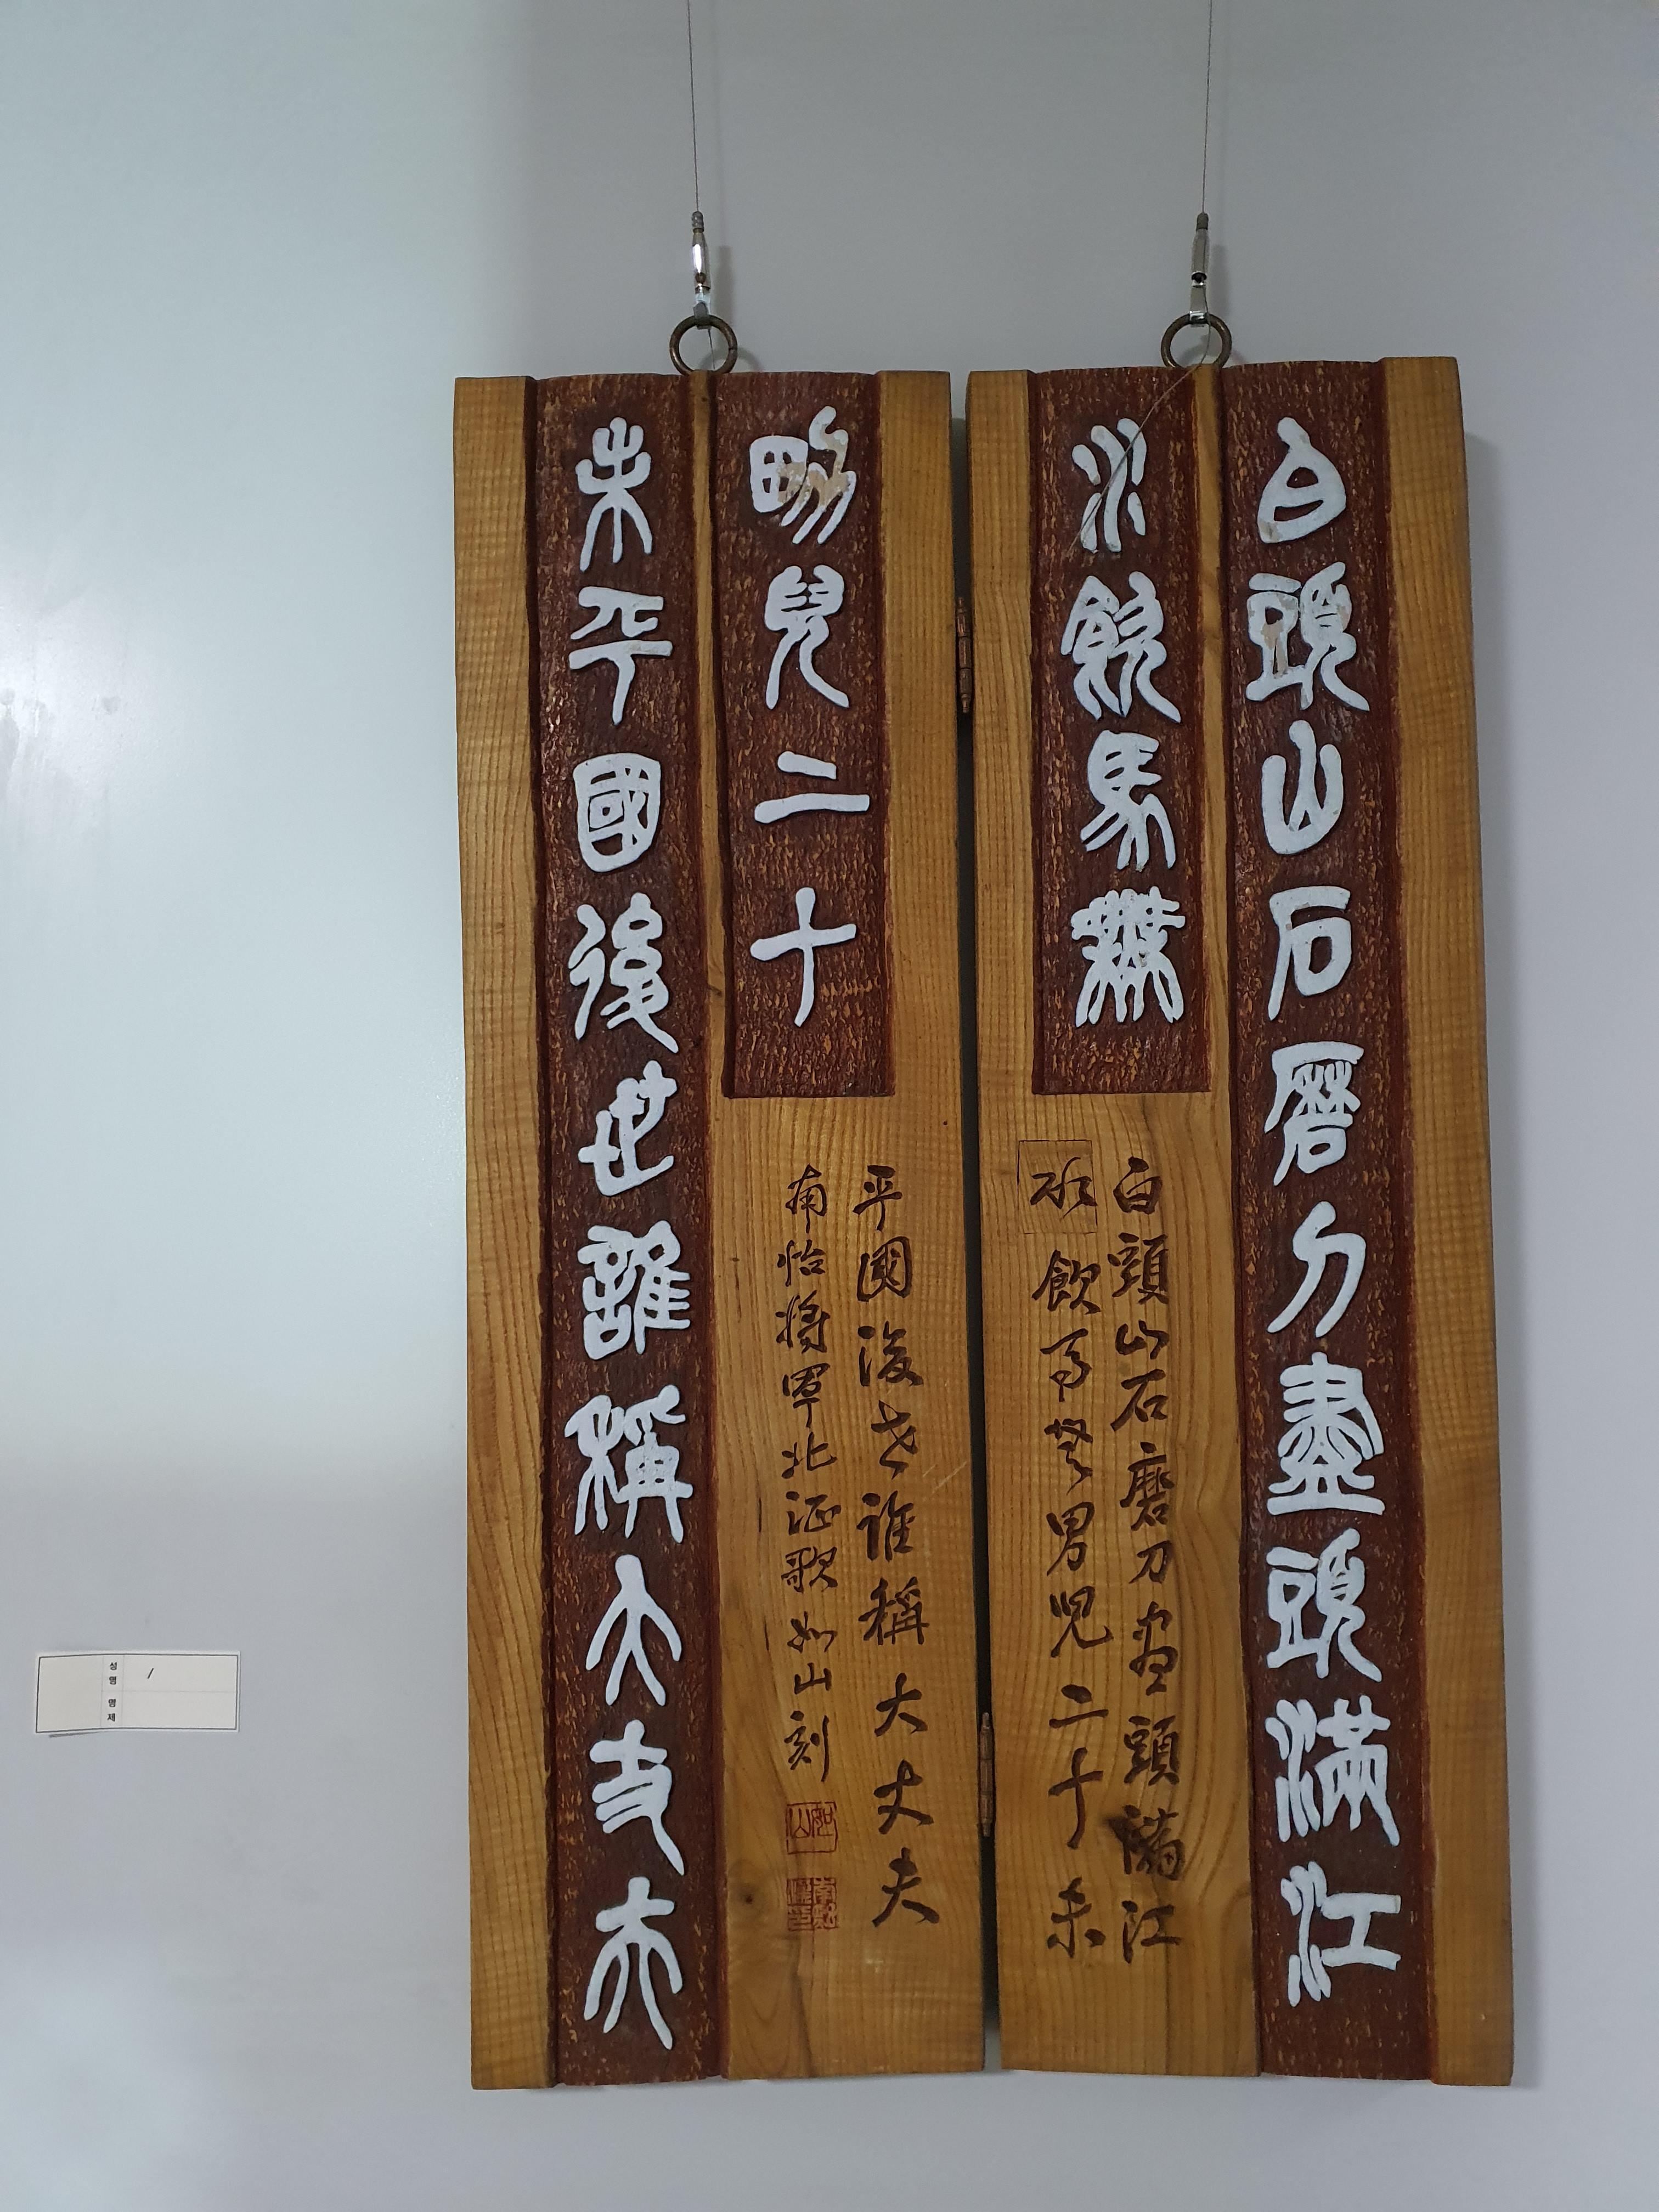 白頭山石磨刀盡頭滿江
水飮馬無
男兒二十
未平國後世誰稱大丈夫
白頭山石磨刀盡頭滿江
水飲馬無男児二十未
平國後世誰稱大丈夫
南怡將軍北征歌如山刻
如山
성명 /
명제